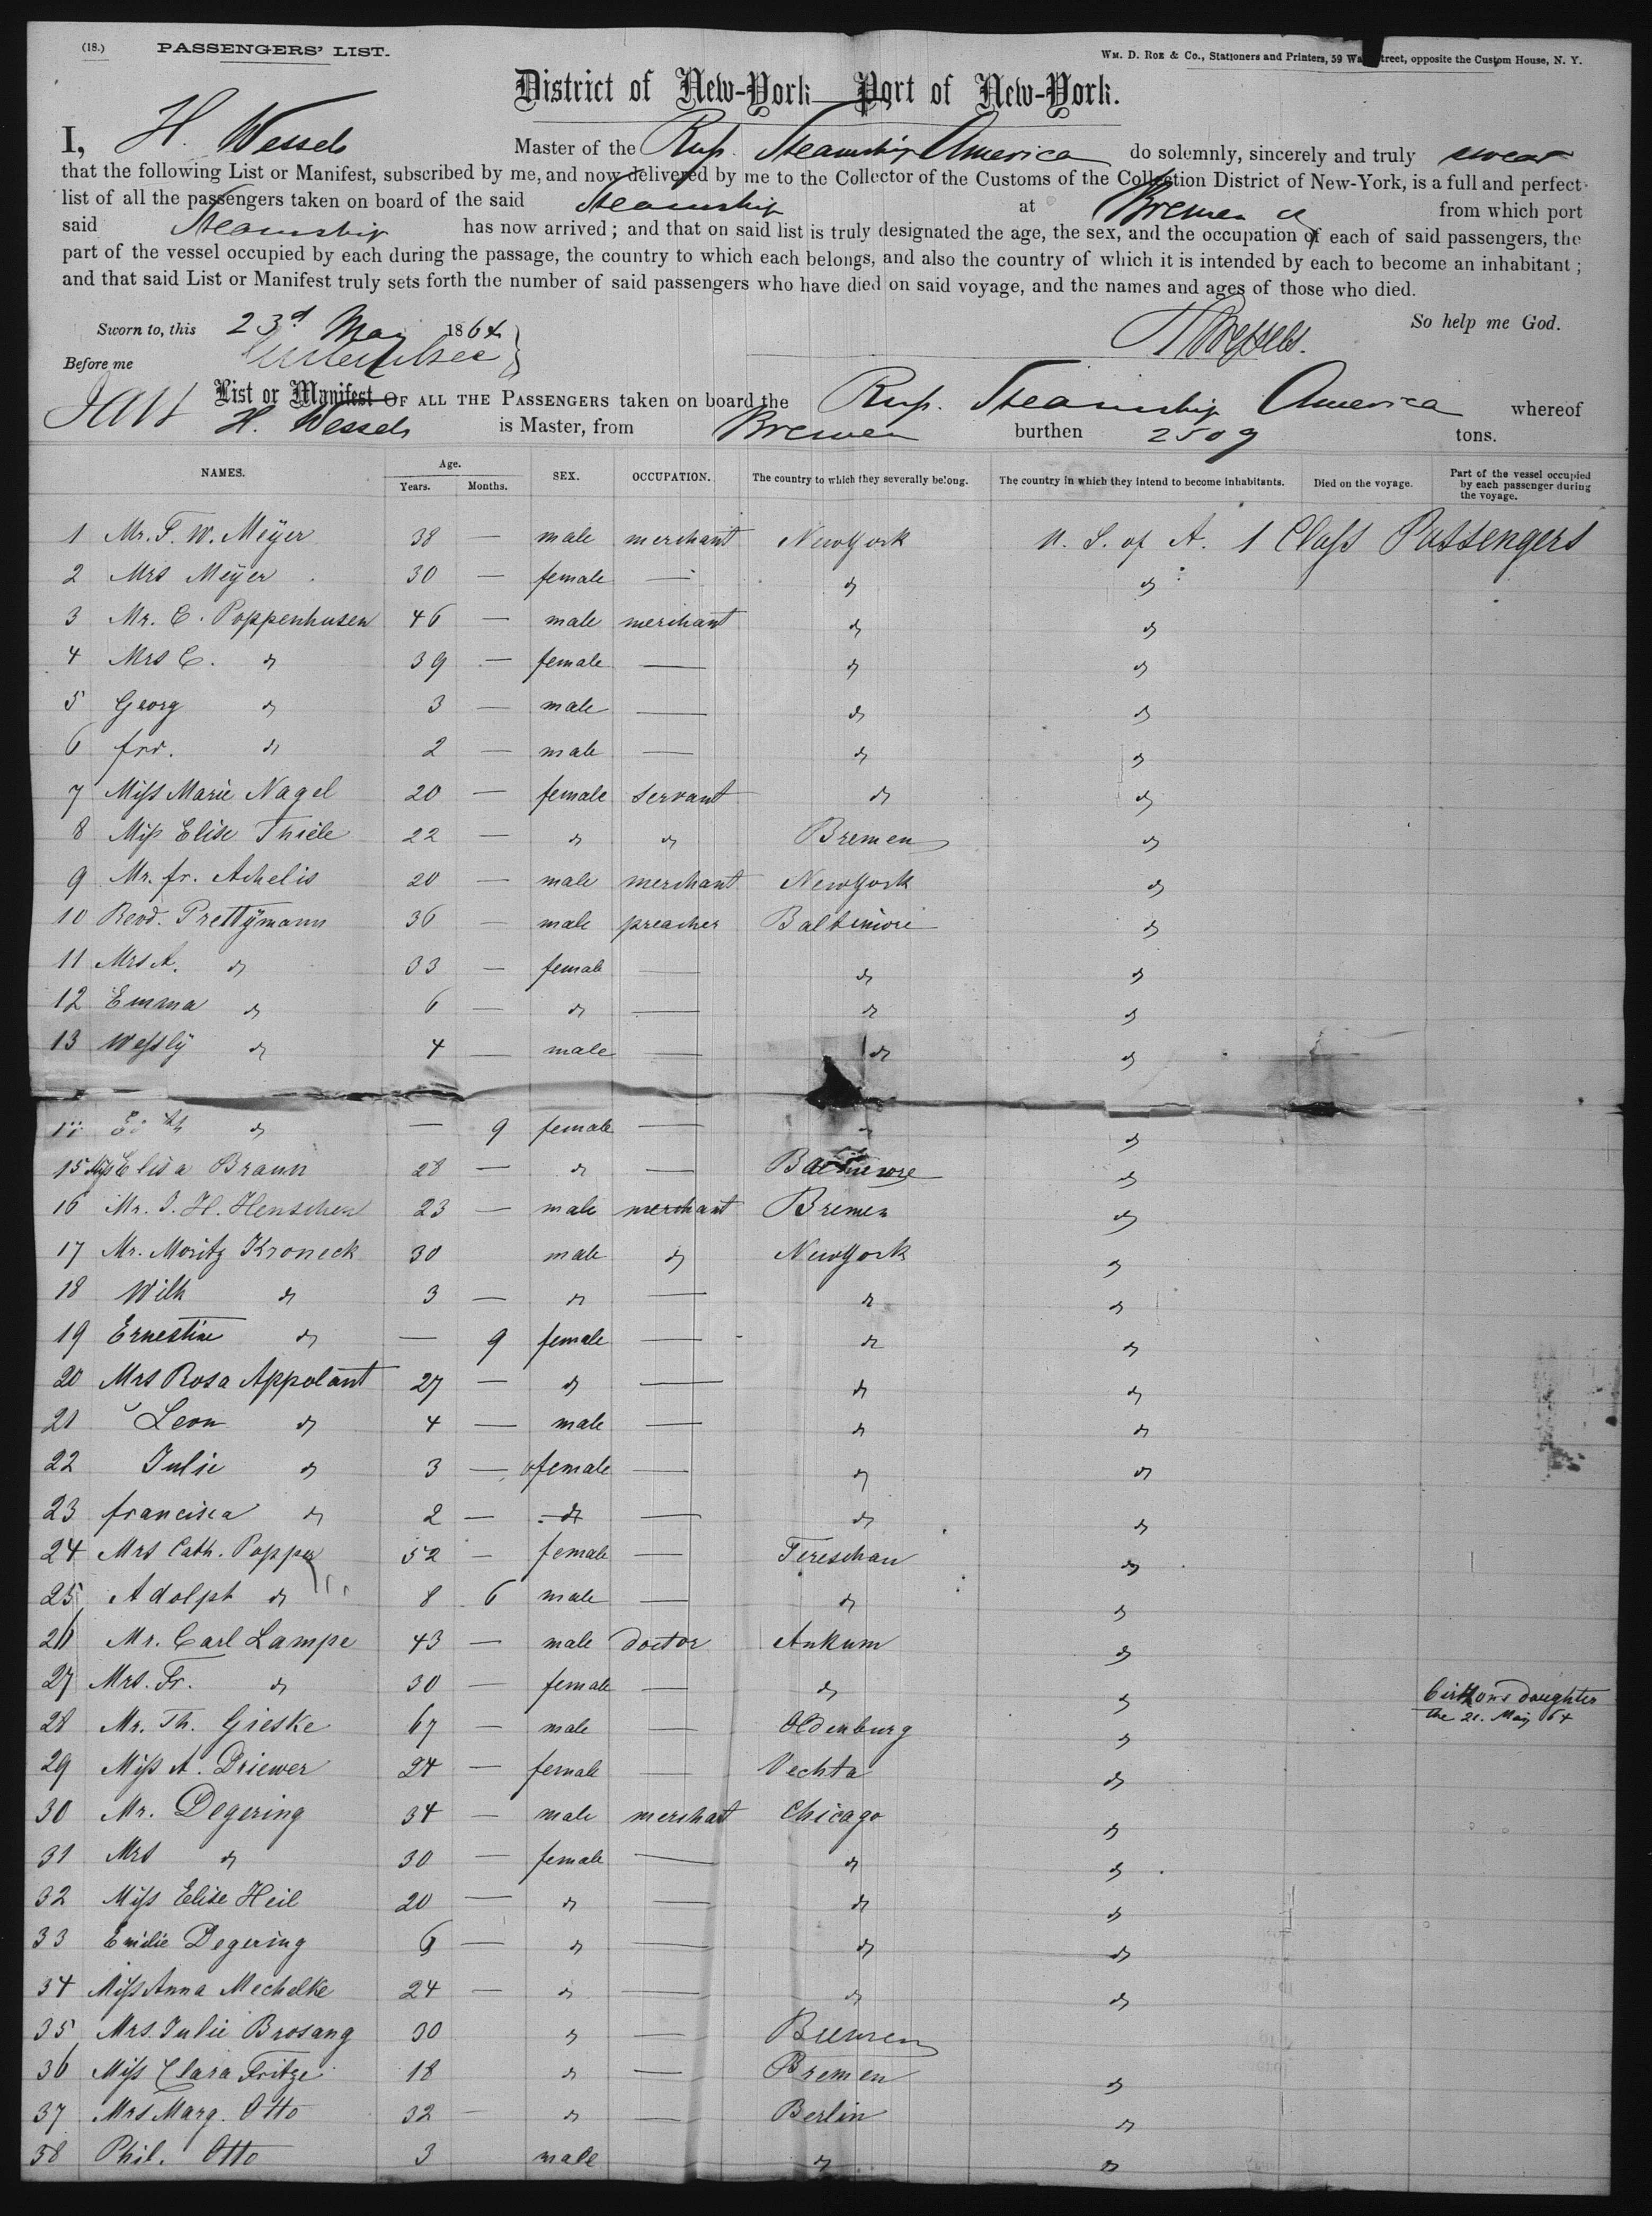 (18.) PASSENGERS' LIST. WM. D. ROE & CO., Stationers and Printers, 59 Wall Street, opposite the Custom House, N. Y.
District of New-York Port of New-York.
I, H. Wessels Master of the Steamship America do solemnly, sincerely and truly swear
that the following List or Manifest, subscribed by me, and now delivered by me to the Collector of the Customs of the Collection District of New-York, is a full and perfect
list of all the passengers taken on board of the said Steamship at Bremen from which port
said Steamship has now arrived; and that on said list is truly designated the age, the sex, and the occupation of each of said passengers, the
part of the vessel occupied by each during the passage, the country to which each belongs, and also the country of which it is intended by each to become an inhabitant;
and that said List or Manifest truly sets forth the number of said passengers who have died on said voyage, and the names and ages of those who died.
So help me God.
Sworn to, this 23d May 1864
H Wessels.
Before me
List or Manifest OF ALL THE PASSENGERS taken on board the Steamship America whereof
H. Wessels is Master, from Bremen burthen 2509 tons.
NAMES. Age. Years. Months. SEX. OCCUPATION. The country to which they severally belong. The country in which they intend to become inhabitants. Died on the voyage. Part of the vessel occupied by each passenger during the voyage.
1 Mr. F. W. Meÿer 38 — male merchant NewYork U. S. of A. 1 Class Passengers
2 Mrs Meÿer 30 — female — " "
3 Mr. C. Poppenhusen 46 — male merchant " "
4 Mrs C. " 39 — female — " "
5 Georg " 3 — male — " "
6 frd. " 2 — male — " "
7 Miss Marie Nagel 20 — female servant " "
8 Miss Elise Thiele 22 — " " Bremen "
9 Mr. fr. Achelis 20 — male merchant NewYork "
10 Revd. Prettÿmann 36 — male preacher Baltimore "
11 Mrs A. " 33 — female — " "
12 Emma " 6 — " — " "
13 Wessly " 4 — male — " "
" — 9 female — " "
15 Miss Elisa Braun 28 — " — Baltimore "
16 Mr. J. H. Henschen 23 — male merchant Bremen "
17 Mr. Moritz Kroneck 30 male " NewYork "
18 Wilh " 3 — " — " "
19 Ernestine " — 9 female — " "
20 Mrs Rosa Appolant 27 — " — " "
21 Leon " 4 — male — " "
22 Julie " 3 — female — " "
23 francisca " 2 — " — " "
24 Mrs Cath. Popper 52 — female — Tereschau "
25 Adolph " 8 6 male — " "
26 Mr. Carl Lampe 43 — male doctor Ankum "
27 Mrs. Fr. " 30 — female — " " birth one daughter the 21. May 64
28 Mr. Th. Gieske 67 — male — Oldenburg "
29 Miss A. Driewer 24 — female — Vechta "
30 Mr. Degering 34 — male merchat Chicago "
31 Mrs " 30 — female — " "
32 Miss Elise Heil 20 — " — " "
33 Emilie Degering 6 — " — " "
34 Miss Anna Mechelke 24 — " — " "
35 Mrs. Julie Brosang 30 " — Bremen
36 Miss Clara Fritze 18 " — Bremen "
37 Mrs Marg. Otto 32 — " — Berlin "
38 Phil. Otto 3 male " "